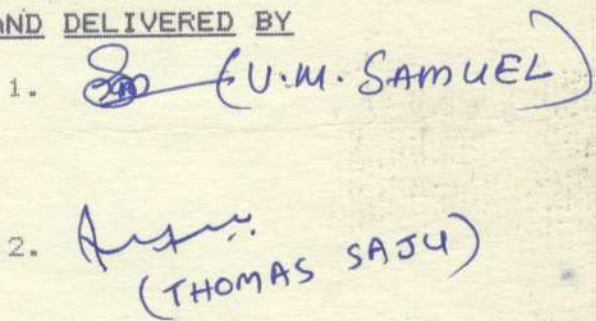 AND DELIVERED BY
1. (U.M. SAMUEL)
2.
(THOMAS SAJU)